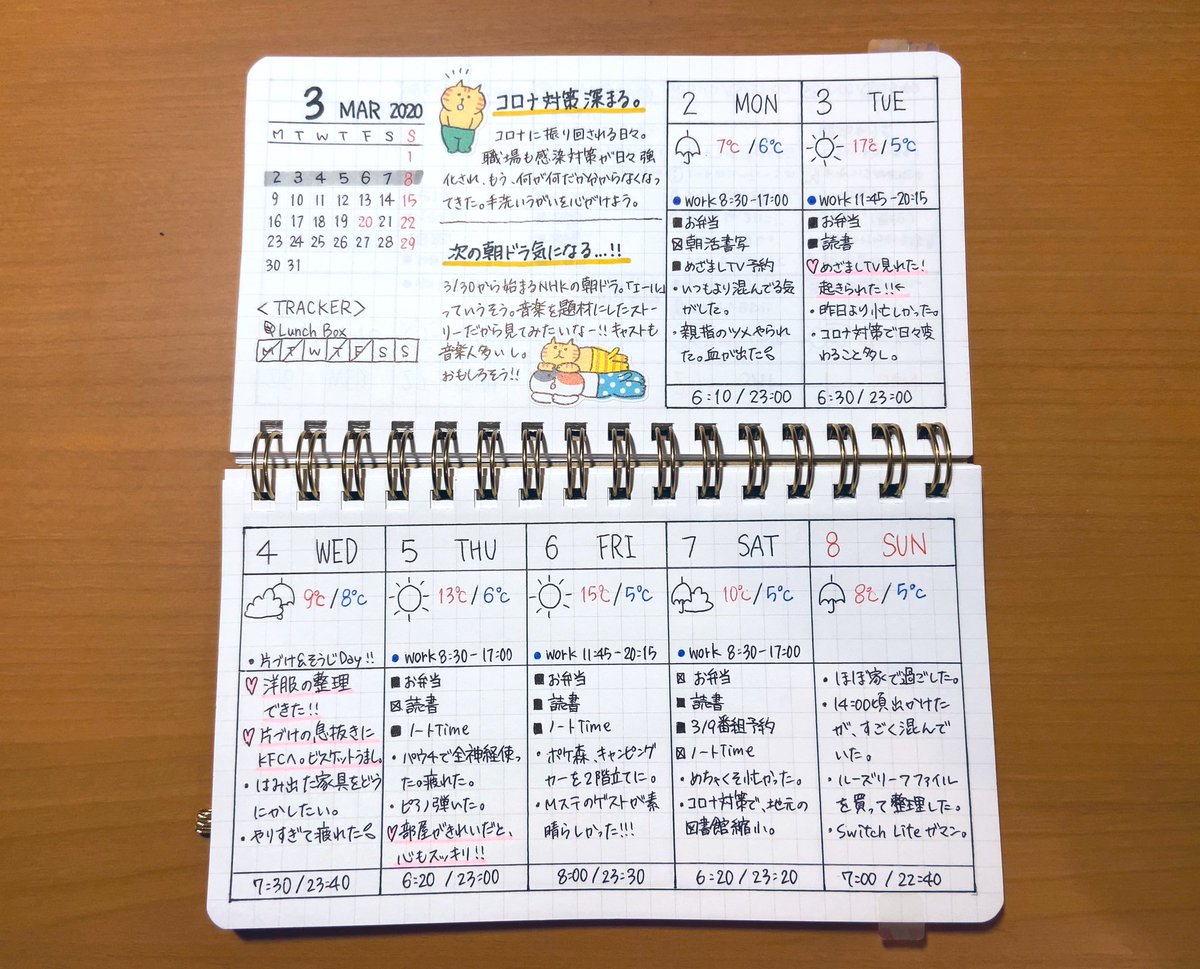 3 MAR 2020
M T W T F S S
1
2 3 4 5 6 7 8
9 10 11 12 13 14 15
16 17 18 19 20 21 22
23 24 25 26 27 28 29
30 31
<TRACKER>
Lunch Box
M T W T F S S
コロナ対策深まる。
コロナに振り回される日々。
職場も感染対策が日々強
化され、もう、何が何だか分からなくなっ
てきた。手洗いうがいを心がけよう。
次の朝ドラ気になる…!!
3/30から始まるNHKの朝ドラ。「エール」
っていうそう。音楽を題材にしたストー
リーだから見てみたいなー!!キャストも
音楽人多いし。
おもしろそう!!
2 MON
7℃/6℃
work 8:30-17:00
お弁当
朝活書写
めざましTV予約
・いつもより混んでる気
がした。
・親指のツメやられ
た。血が出た
6:10/23:00
3 TUE
17℃/5℃
work 11:45-20:15
お弁当
読書
♡めざましTV見れた!
起きられた!!←
・昨日より忙しかった。
・コロナ対策で日々変
わること多し。
6:30/23:00
4 WED
9℃/8℃
・片づけ&そうじDay!!
♡洋服の整理
できた!!
♡片づけの息抜きに
KFCへ。ビスケットうまし。
・はみ出た家具をどう
にかしたい。
・やりすぎて疲れた
7:30/23:40
5 THU
13℃/6℃
work 8:30-17:00
お弁当
読書
ノートTime
・パウチで全神経使っ
た。疲れた。
・ピアノ弾いた。
♡部屋がきれいだと、
心もスッキリ!!
6:20/23:00
6 FRI
15℃/5℃
work 11:45-20:15
お弁当
読書
ノートTime
・ポケ森、キャンピング
カーを2階立てに。
・Mステのゲストが素
晴らしかった!!!
8:00/23:30
7 SAT
10℃/5℃
work 8:30-17:00
お弁当
読書
3/9番組予約
ノートTime
・めちゃくそ忙かった。
・コロナ対策で、地元の
図書館縮小。
6:20/23:20
8 SUN
8℃/5℃
・ほぼ家で過ごした。
・14:00頃出かけた
が、すごく混んで
いた。
・ルーズリーフファイル
を買って整理した。
・Switch Liteガマン。
7:00/22:40